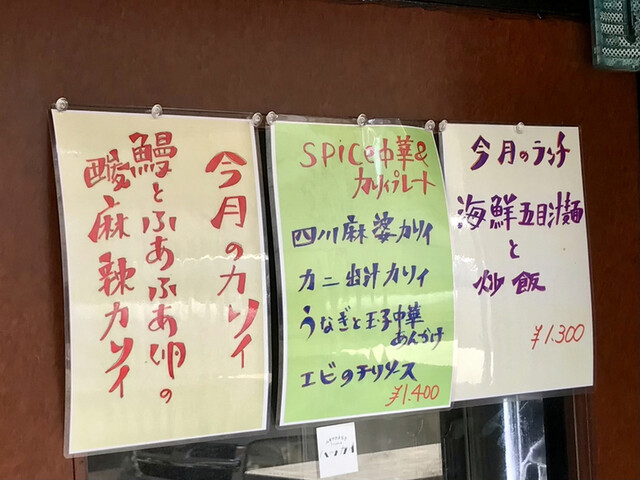 今月のカリイ
鰻とふあふあ卵の
酸麻辣カリイ
SPICE中華&
カリイプレート
四川麻婆カリイ
カニ出汁カリイ
うなぎと玉子中華
あんかけ
エビのチリソース
¥1.400
今月のランチ
海鮮五目汁麺
と
炒飯
¥1.300